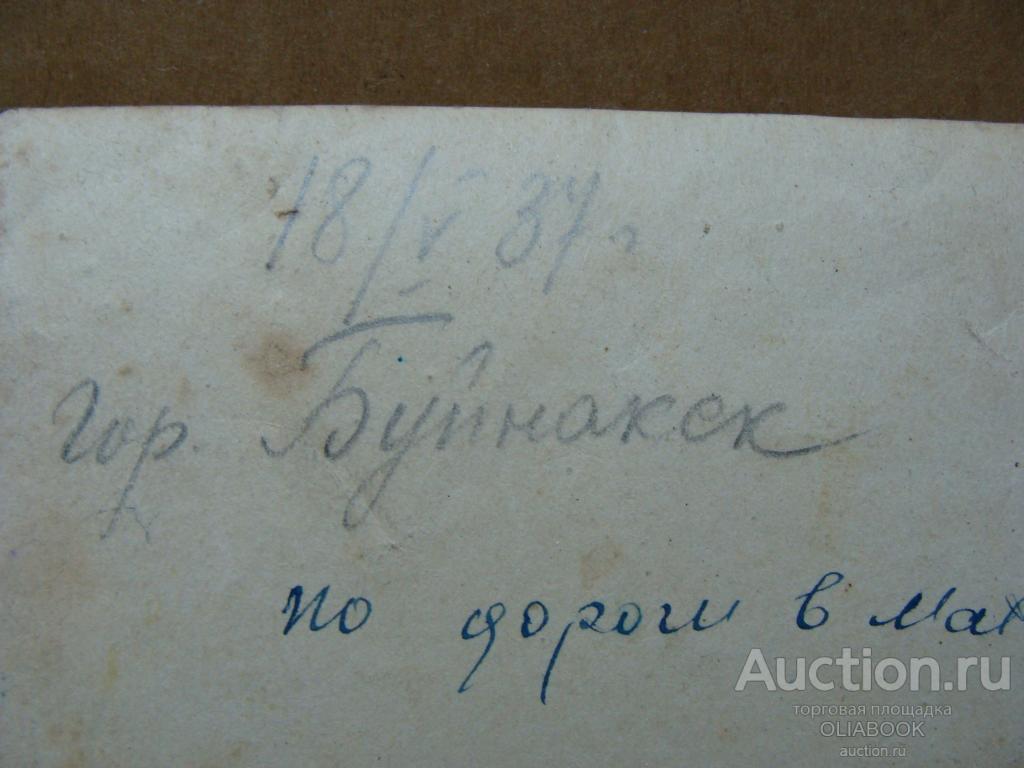 18/V 37 г
гор. Буйнакск
по дороги в Мах
Auction.ru
торговая площадка
OLIABOOK
auction.ru